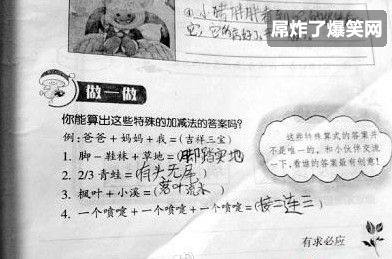 屌炸了爆笑网
①小猪胖胖
做一做
你能算出这些特殊的加减法的答案吗?
例:爸爸+妈妈+我=(吉祥三宝)
1. 脚-鞋袜+草地=(脚踏实地)
2. 2/3 青蛙=(有头无尾)
3. 枫叶+小溪=(落叶流水)
4. 一个喷嚏+一个喷嚏+一个喷嚏=(接二连三)
这些特殊算式的答案并
不是唯一的。和小伙伴交流
一下,看谁的答案最有创意!
有求必应